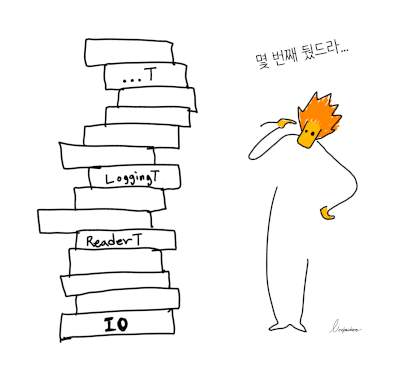 몇 번째 뒀드라...
...T
LoggingT
ReaderT
IO